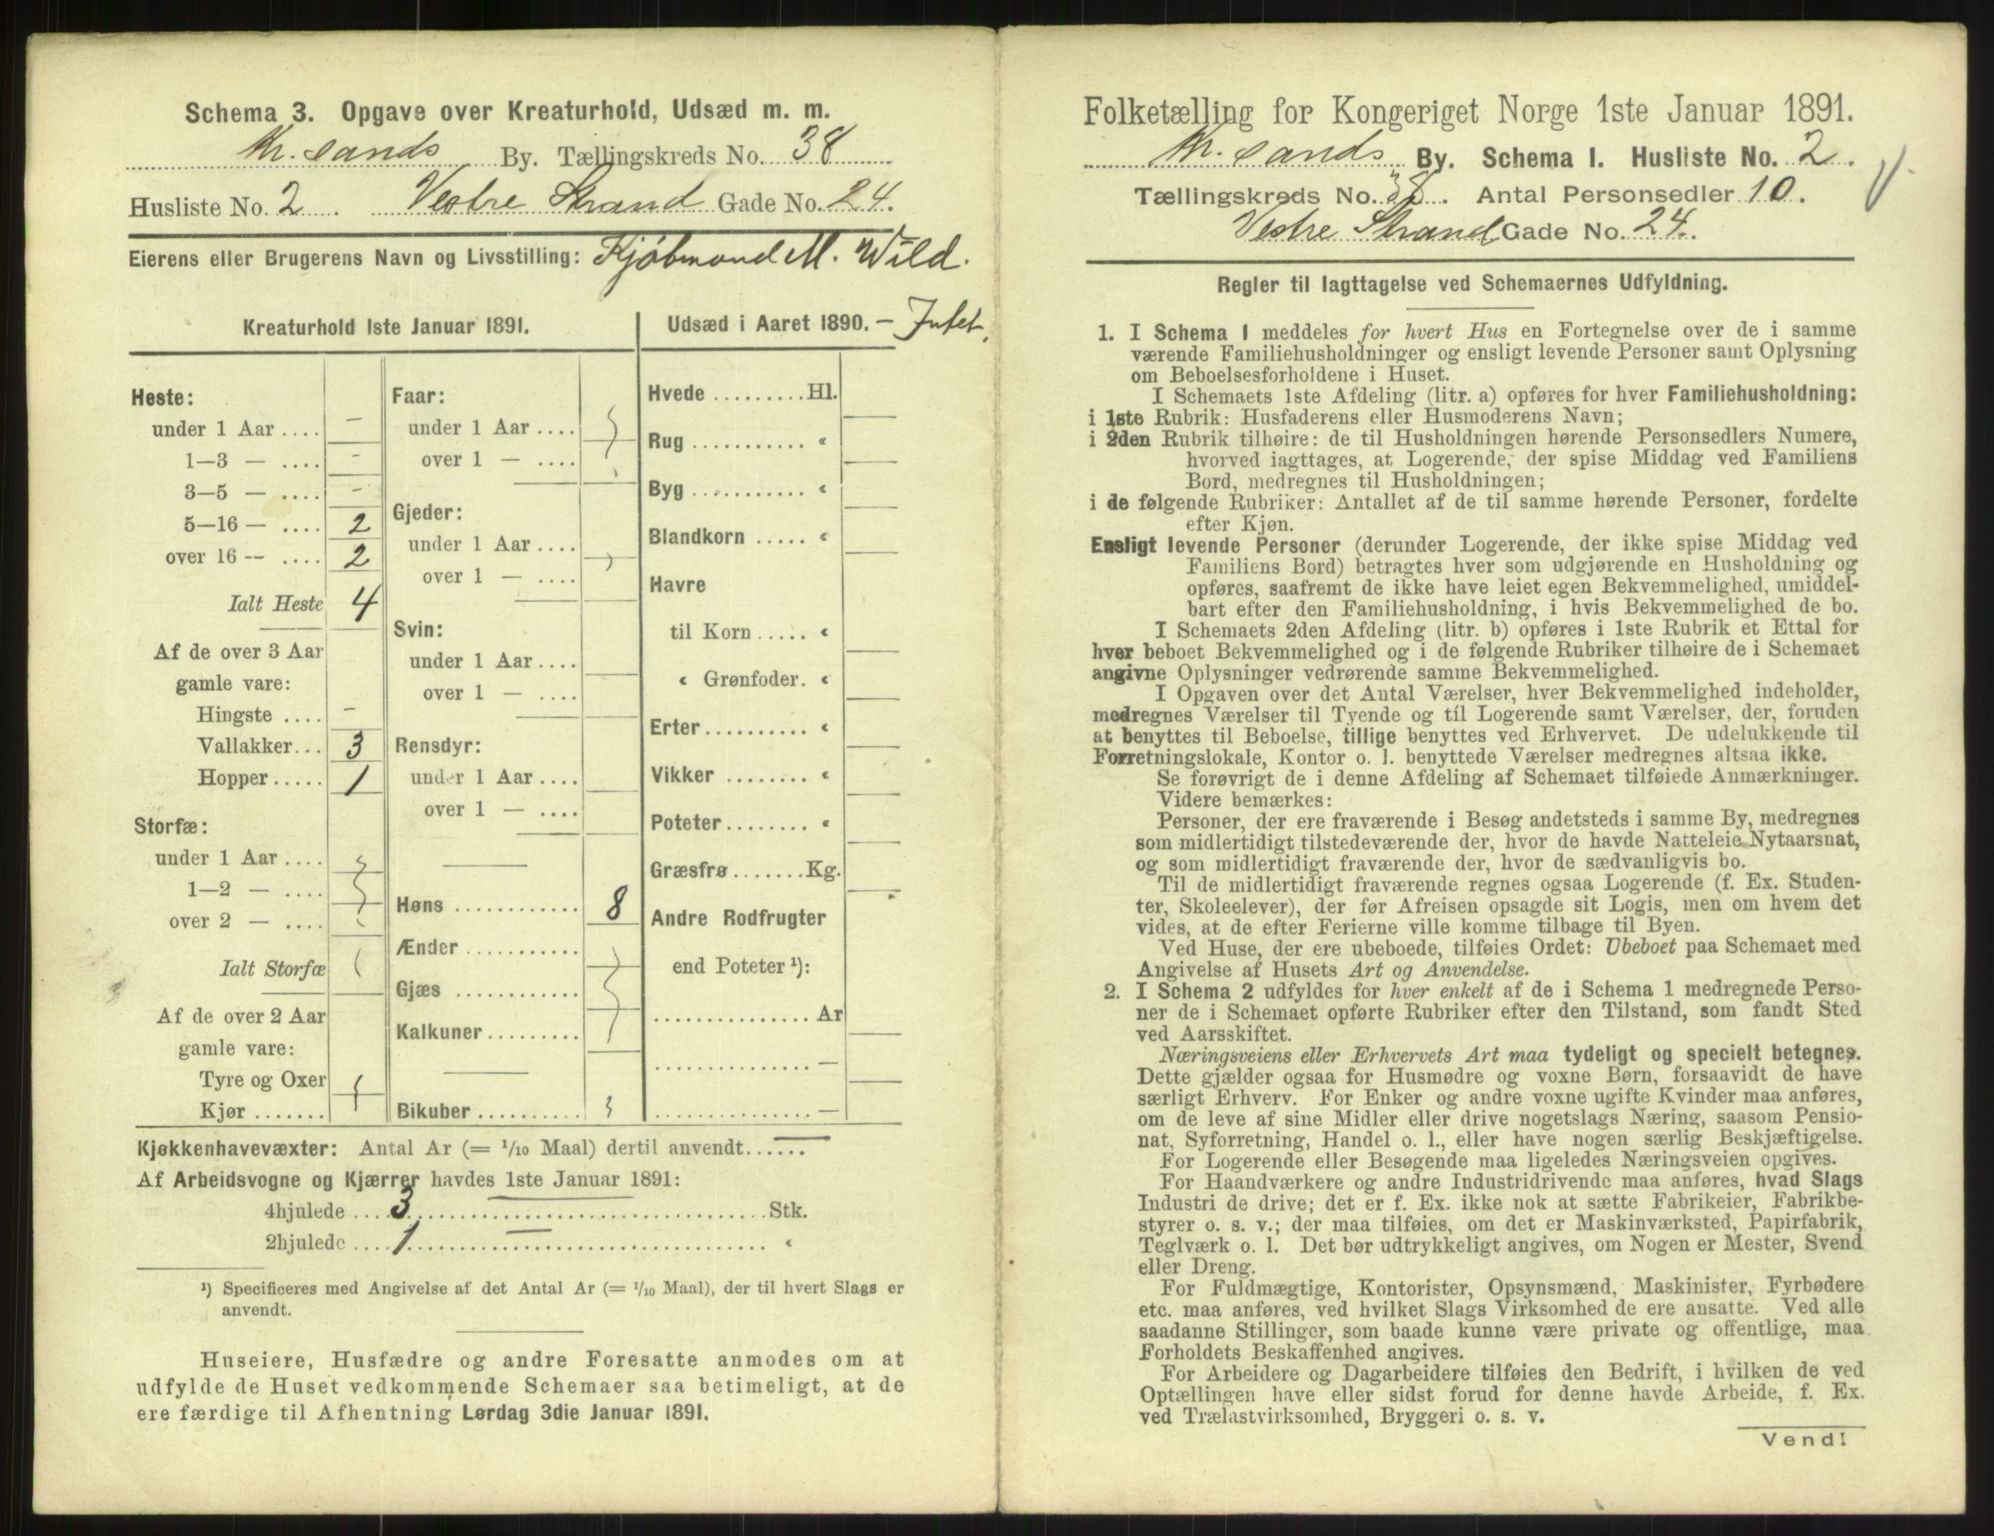 Schema 3. Opgave over Kreaturhold, Udsæd m. m.
Kr.sands By. Tællingskreds No. 38
Husliste No. 2. Vestre Strand Gade No. 24.
Eierens eller Brugerens Navn og Livsstilling: Kjöbmand M. Wild.
Kreaturhold 1ste Januar 1891.
Heste:
under 1 Aar .... –
1—3 — .... –
3—5 — .... –
5—16 — .... 2
over 16 — .... 2
Ialt Heste 4
Af de over 3 Aar
gamle vare:
Hingste .... –
Vallakker... 3
Hopper..... 1
Storfæ:
under 1 Aar ....
1—2 — ....
over 2 — ....
Ialt Storfæ
Af de over 2 Aar
gamle vare:
Tyre og Oxer
Kjør .......
Faar:
under 1 Aar ....
over 1 — ....
Gjeder:
under 1 Aar ....
over 1 — ....
Svin:
under 1 Aar ....
over 1 — ....
Rensdyr:
under 1 Aar ....
over 1 — ....
Høns ............ 8
Ænder ...........
Gjæs ............
Kalkuner .........
Bikuber ..........
Udsæd i Aaret 1890. – Intet.
Hvede .........Hl.
Rug ........... «
Byg ........... «
Blandkorn ..... «
Havre
til Korn ..... «
« Grønfoder. «
Erter.......... «
Vikker ........ «
Poteter........ «
Græsfrø .......Kg.
Andre Rodfrugter
end Poteter ¹):
............... Ar
............... —
............... —
Kjøkkenhavevæxter: Antal Ar (= 1/10 Maal) dertil anvendt......
Af Arbeidsvogne og Kjærrer havdes 1ste Januar 1891:
4hjulede .... 3 .... Stk.
2hjulede .... 1 .... «
¹) Specificeres med Angivelse af det Antal Ar (= 1/10 Maal), der til hvert Slags er
anvendt.
Huseiere, Husfædre og andre Foresatte anmodes om at
udfylde de Huset vedkommende Schemaer saa betimeligt, at de
ere færdige til Afhentning Lørdag 3die Januar 1891.
Folketælling for Kongeriget Norge 1ste Januar 1891.
Kr.sands By. Schema 1. Husliste No. 2.
Tællingskreds No. 38. Antal Personsedler 10.
Vestre Strand Gade No. 24.
Regler til Iagttagelse ved Schemaernes Udfyldning.
1. I Schema 1 meddeles for hvert Hus en Fortegnelse over de i samme
værende Familiehusholdninger og ensligt levende Personer samt Oplysning
om Beboelsesforholdene i Huset.
I Schemaets 1ste Afdeling (litr. a) opføres for hver Familiehusholdning:
i 1ste Rubrik: Husfaderens eller Husmoderens Navn;
i 2den Rubrik tilhøire: de til Husholdningen hørende Personsedlers Numere,
hvorved iagttages, at Logerende, der spise Middag ved Familiens
Bord, medregnes til Husholdningen;
i de følgende Rubriker: Antallet af de til samme hørende Personer, fordelte
efter Kjøn.
Ensligt levende Personer (derunder Logerende, der ikke spise Middag ved
Familiens Bord) betragtes hver som udgjørende en Husholdning og
opføres, saafremt de ikke have leiet egen Bekvemmelighed, umiddel-
bart efter den Familiehusholdning, i hvis Bekvemmelighed de bo.
I Schemaets 2den Afdeling (litr. b) opføres i 1ste Rubrik et Ettal for
hver beboet Bekvemmelighed og i de følgende Rubriker tilhøire de i Schemaet
angivne Oplysninger vedrørende samme Bekvemmelighed.
I Opgaven over det Antal Værelser, hver Bekvemmelighed indeholder,
medregnes Værelser til Tyende og til Logerende samt Værelser, der, foruden
at benyttes til Beboelse, tillige benyttes ved Erhvervet. De udelukkende til
Forretningslokale, Kontor o. l. benyttede Værelser medregnes altsaa ikke.
Se forøvrigt de i denne Afdeling af Schemaet tilføiede Anmærkninger.
Videre bemærkes:
Personer, der ere fraværende i Besøg andetsteds i samme By, medregnes
som midlertidigt tilstedeværende der, hvor de havde Natteleie Nytaarsnat,
og som midlertidigt fraværende der, hvor de sædvanligvis bo.
Til de midlertidigt fraværende regnes ogsaa Logerende (f. Ex. Studen-
ter, Skoleelever), der før Afreisen opsagde sit Logis, men om hvem det
vides, at de efter Ferierne ville komme tilbage til Byen.
Ved Huse, der ere ubeboede, tilføies Ordet: Ubeboet paa Schemaet med
Angivelse af Husets Art og Anvendelse.
2. I Schema 2 udfyldes for hver enkelt af de i Schema 1 medregnede Perso-
ner de i Schemaet opførte Rubriker efter den Tilstand, som fandt Sted
ved Aarsskiftet.
Næringsveiens eller Erhvervets Art maa tydeligt og specielt betegnes.
Dette gjælder ogsaa for Husmødre og voxne Børn, forsaavidt de have
særligt Erhverv. For Enker og andre voxne ugifte Kvinder maa anføres,
om de leve af sine Midler eller drive nogetslags Næring, saasom Pensio-
nat, Syforretning, Handel o. l., eller have nogen særlig Beskjæftigelse.
For Logerende eller Besøgende maa ligeledes Næringsveien opgives.
For Haandværkere og andre Industridrivende maa anføres, hvad Slags
Industri de drive; det er f. Ex. ikke nok at sætte Fabrikeier, Fabrikbe-
styrer o. s. v.; der maa tilføies, om det er Maskinværksted, Papirfabrik,
Teglværk o. l. Det bør udtrykkeligt angives, om Nogen er Mester, Svend
eller Dreng.
For Fuldmægtige, Kontorister, Opsynsmænd, Maskinister, Fyrbødere
etc. maa anføres, ved hvilket Slags Virksomhed de ere ansatte. Ved alle
saadanne Stillinger, som baade kunne være private og offentlige, maa
Forholdets Beskaffenhed angives.
For Arbeidere og Dagarbeidere tilføies den Bedrift, i hvilken de ved
Optællingen have eller sidst forud for denne havde Arbeide, f. Ex.
ved Trælastvirksomhed, Bryggeri o. s. v.
Vend!